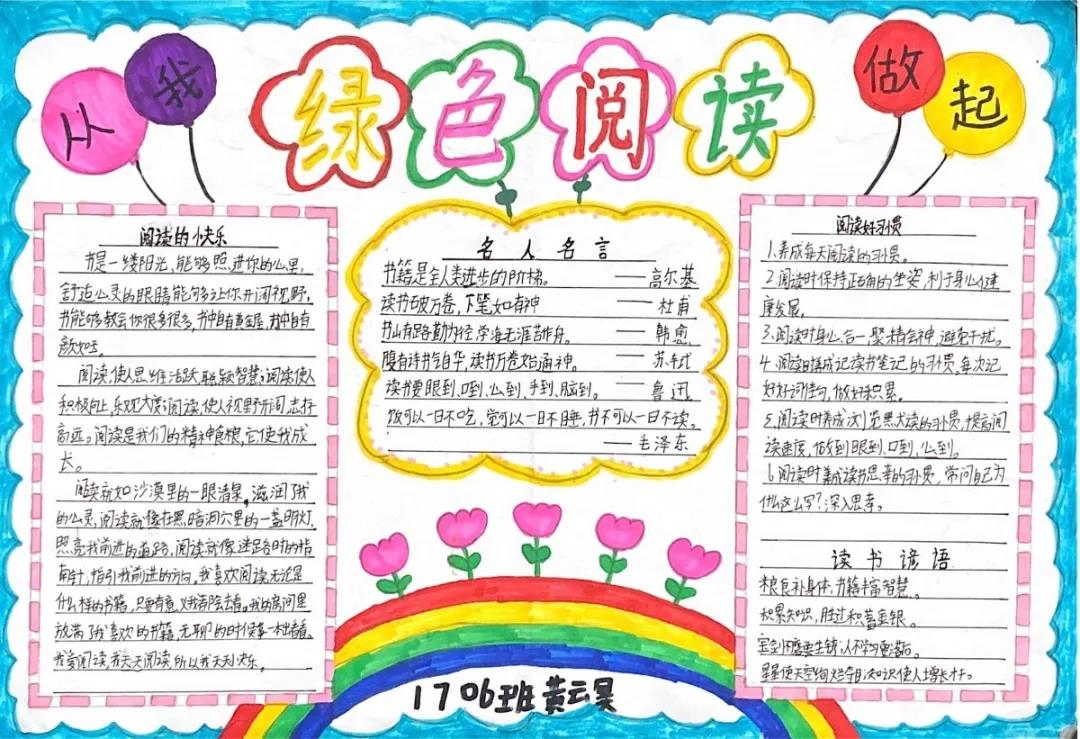 从我
绿色阅读
做起
阅读的快乐
书是一缕阳光,能够照进你的心里,
舒适心灵的眼睛能够让你开阔视野,
书能够教会你很多很多,书中自有黄金屋,书中自有
颜如玉。
阅读,使人思维活跃聪颖智慧;阅读使人
积极向上,乐观大气;阅读,使人视野开阔,志存
高远。阅读是我们的精神食粮,它使我成
长。
阅读就如沙漠里的一眼清泉,滋润了我
的心灵,阅读就像在黑暗洞穴里的一盏明灯,
照亮我前进的道路,阅读就像迷路时的指
南针,指引我前进的方向。我喜欢阅读,无论是
什么样的书籍,只要有意义我都会去看。我的房间里
放满了我喜欢的书籍,无聊的时候拿一本看看。
我爱阅读,我天天阅读所以我天天快乐。
名人名言
书籍是全人类进步的阶梯。——高尔基
读书破万卷,下笔如有神——杜甫
书山有路勤为径学海无涯苦作舟。——韩愈
腹有诗书气自华,读书万卷始通神。——苏轼
读书要眼到、口到、心到、手到、脑到。——鲁迅
饭可以一日不吃,觉可以一日不睡,书不可以一日不读。
——毛泽东
阅读好习惯
1.养成每天阅读的习惯。
2.阅读时保持正确的坐姿,利于身心健
康发展。
3.阅读时身心合一,聚精会神,避免干扰。
4.阅读时养成记读书笔记的习惯,每次记
好好词佳句,做好积累。
5.阅读时养成浏览默读的习惯,提高阅
读速度,做到眼到、口到、心到。
6.阅读时养成读书思考的习惯,常问自己为
什么这么写?深入思考。
读书谚语
粮食补身体,书籍丰富智慧。
积累知识,胜过积蓄金银。
宝剑不磨要生锈;人不学习要落后。
星星使天空绚烂夺目;知识使人增长才干。
1706班黄云昊